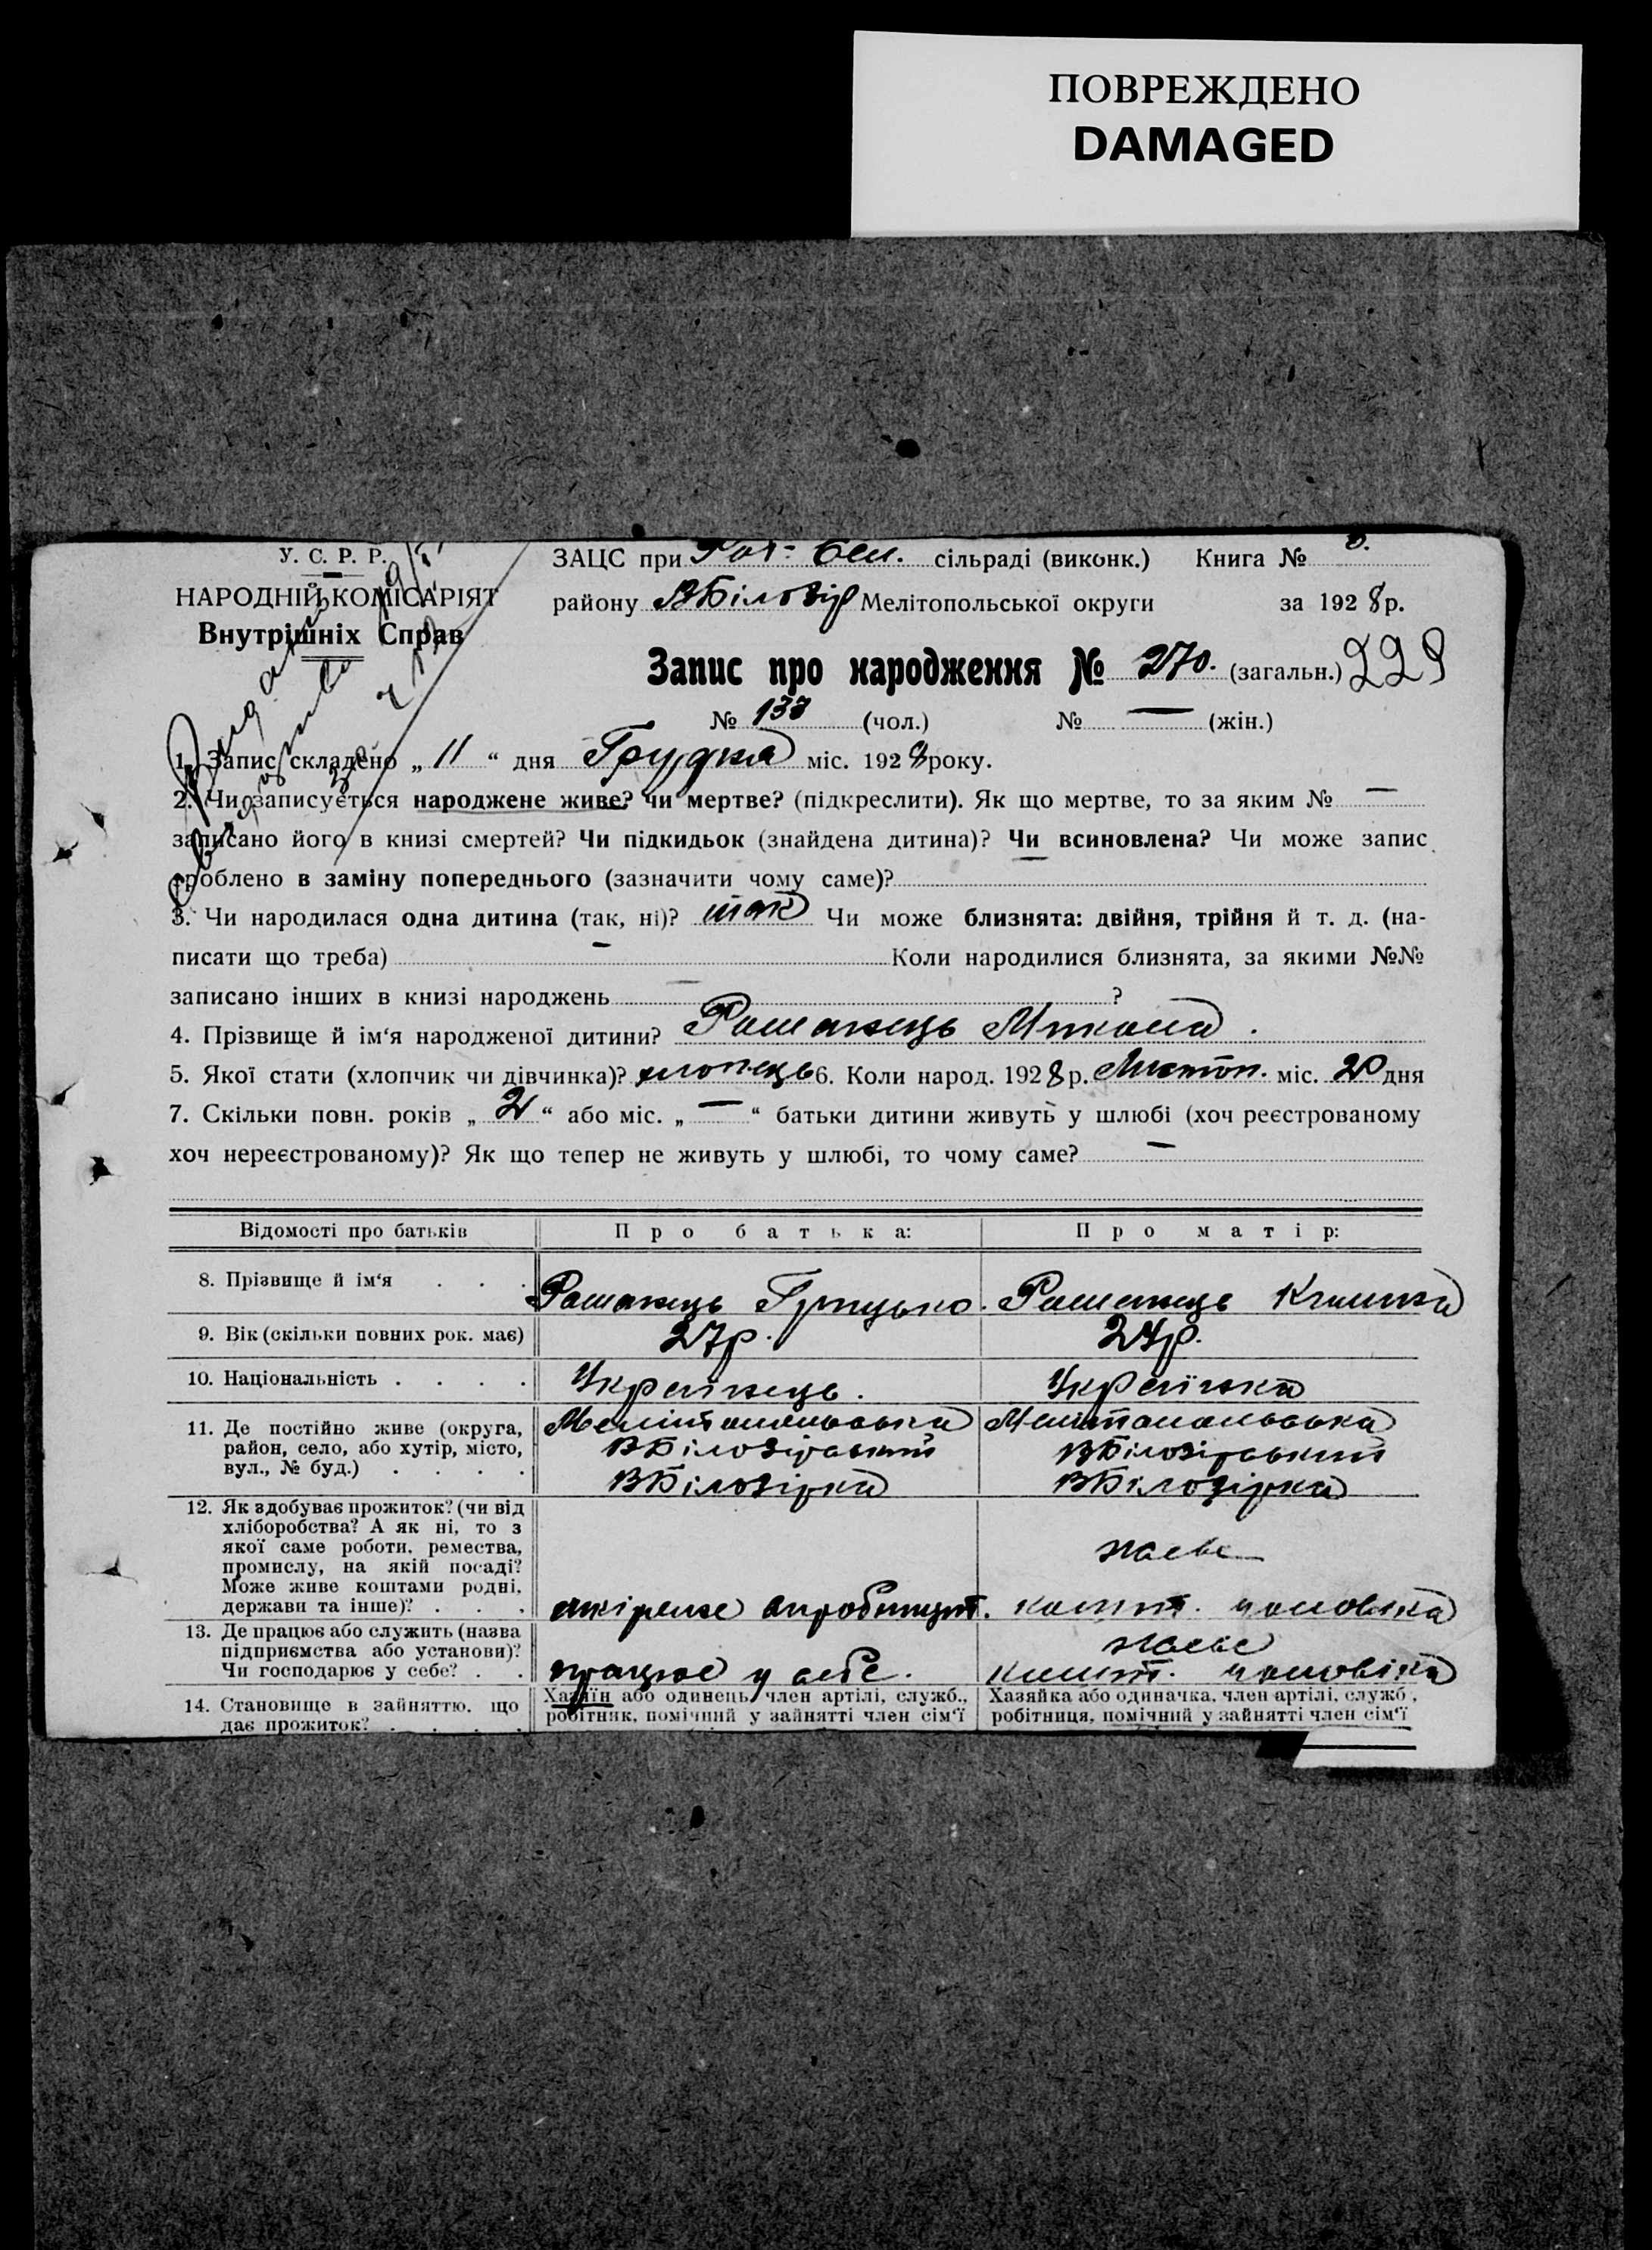 ПОВРЕЖДЕНО
DAMAGED
У. С. Р. Р.
НАРОДНІЙ КОМІСАРІЯТ
Внутрішніх Справ
ЗАЦС при сільраді (виконк.) Книга №
району ВБілозір Мелітопольської округи за 1928 р.
Запис про народження № 270. (загальн.) 229
№ 133 (чол.) № — (жін.)
1. Запис складено „ 11 “ дня Грудня міс. 1928 року.
2. Чи записується народжене живе? чи мертве? (підкреслити). Як що мертве, то за яким № —
записано його в книзі смертей? Чи підкидьок (знайдена дитина)? Чи всиновлена? Чи може запис
зроблено в заміну попереднього (зазначити чому саме)?
3. Чи народилася одна дитина (так, ні)? так Чи може близнята: двійня, трійня й т. д. (на-
писати що треба) — Коли народилися близнята, за якими №№
записано інших в книзі народжень — ?
4. Прізвище й ім‘я народженої дитини? Микола .
5. Якої стати (хлопчик чи дівчинка)? хлопець 6. Коли народ. 1928 р. Листоп. міс. 20 дня
7. Скільки повн. років „ 2 “ або міс. „ — “ батьки дитини живуть у шлюбі (хоч реєстрованому
хоч нереєстрованому)? Як що тепер не живуть у шлюбі, то чому саме? —
Відомості про батьків Про батька: Про матір:
8. Прізвище й ім‘я . . . Грицько.
9. Вік (скільки повних рок. має) 27р. 24р.
10. Національність . . . . Українець. Українка
11. Де постійно живе (округа, Мелітопольська Мелітопольська
район, село, або хутір, місто, ВБілозірський ВБілозірський
вул., № буд.) . . . . ВБілозірка ВБілозірка
12. Як здобуває прожиток? (чи від
хліборобства? А як ні, то з
якої саме роботи, ремества, живе
промислу, на якій посаді?
Може живе коштами родні,
держави та інше)? . . . кошт. чоловіка
13. Де працює або служить (назва
підприємства або установи)? живе
Чи господарює у себе? . . працює у себе. кошт. чоловіка
14. Становище в зайняттю, що Хазяїн або одинець, член артілі, служб., Хазяйка або одиначка, член артілі, служб.,
дає прожиток? . . . . робітник, помічний у зайнятті член сім‘ї робітниця, помічний у зайнятті член сім‘ї